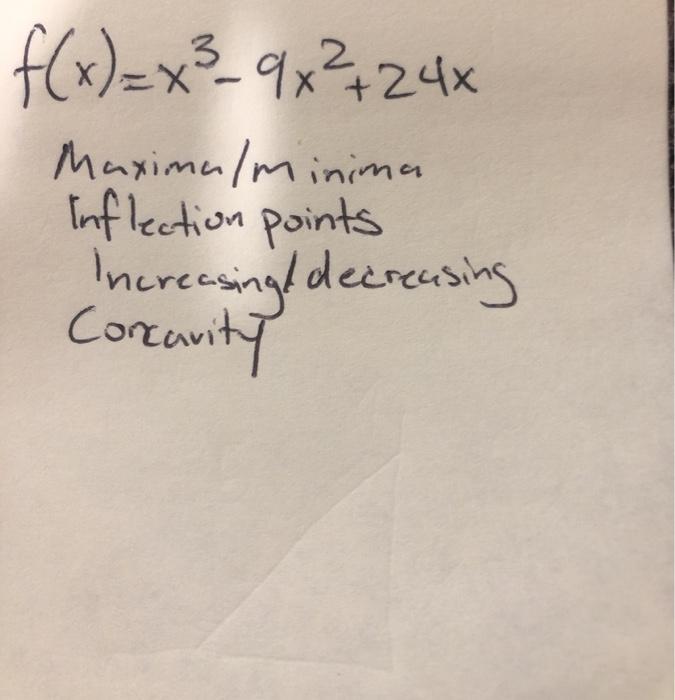 f(x)=x³-9x²+24x
Maxima/minima
Inflection points
Increasing/decreasing
Concavity